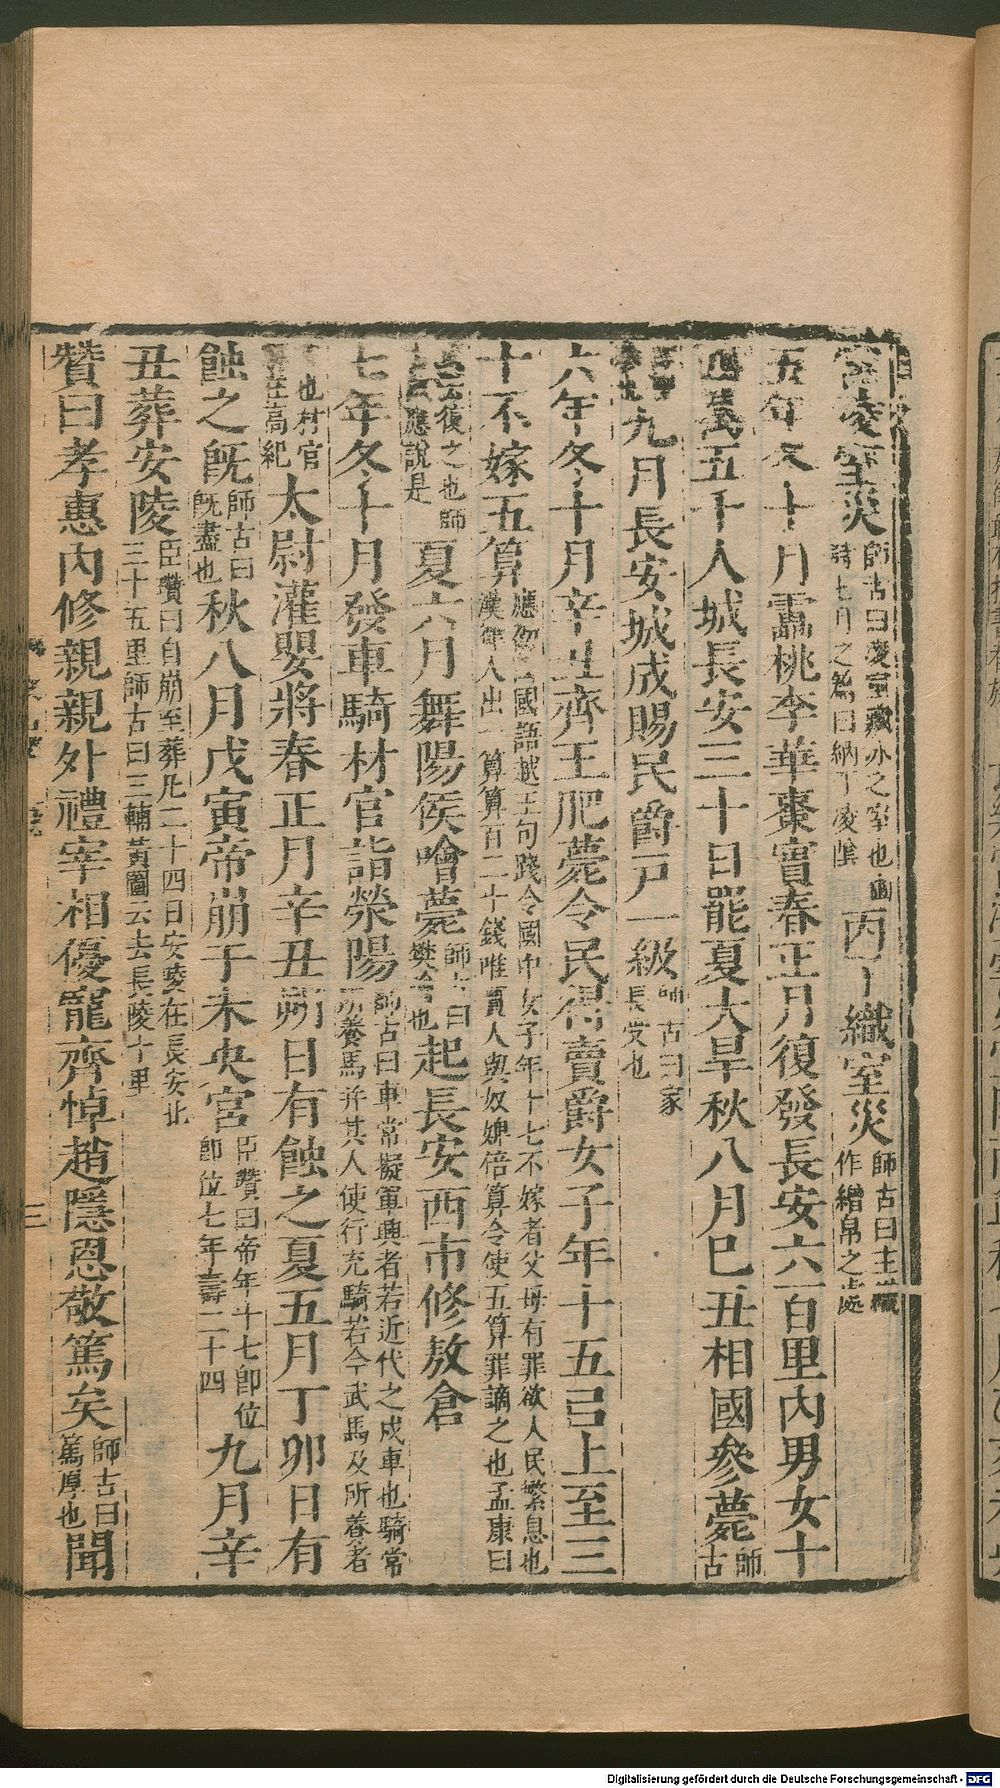 宮凌室災師古曰凌室藏冰之室也豳詩七月之篇曰納于凌陰丙子織室災師古曰主織作繒帛之處
五年冬十月靁桃李華棗實春正月復發長安六百里內男女十
四萬五千人城長安三十日罷夏大旱秋八月己丑相國參薨師古
九月長安城成賜民爵戶一級師古曰家長受也
六年冬十月辛丑齊王肥薨令民得賣爵女子年十五㠯上至三
十不嫁五算應劭曰國語越王句踐令國中女子年十七不嫁者父母有罪欲人民繁息也漢律人出一算算百二十錢唯賈人與奴婢倍算今使五算罪謫之也孟康曰
復之也師應說是夏六月舞陽侯噲薨師古曰樊噲也起長安西市修敖倉
七年冬十月發車騎材官詣滎陽師古曰車常擬軍興者若近代之戍車也騎常所養馬并其人使行充騎若今武馬及所養者
也材官解在高紀太尉灌嬰將春正月辛丑朔日有蝕之夏五月丁卯日有
蝕之旣師古曰旣盡也秋八月戊寅帝崩于未央宮臣瓚曰帝年十七卽位卽位七年壽二十四九月辛
丑葬安陵臣瓚曰自崩至葬凡二十四日安陵在長安北三十五里師古曰三輔黃圖云去長陵十里
贊曰孝惠內修親親外禮宰相優寵齊悼趙隱恩敬篤矣師古曰篤厚也聞
三
Digitalisierung gefördert durch die Deutsche Forschungsgemeinschaft - DFG